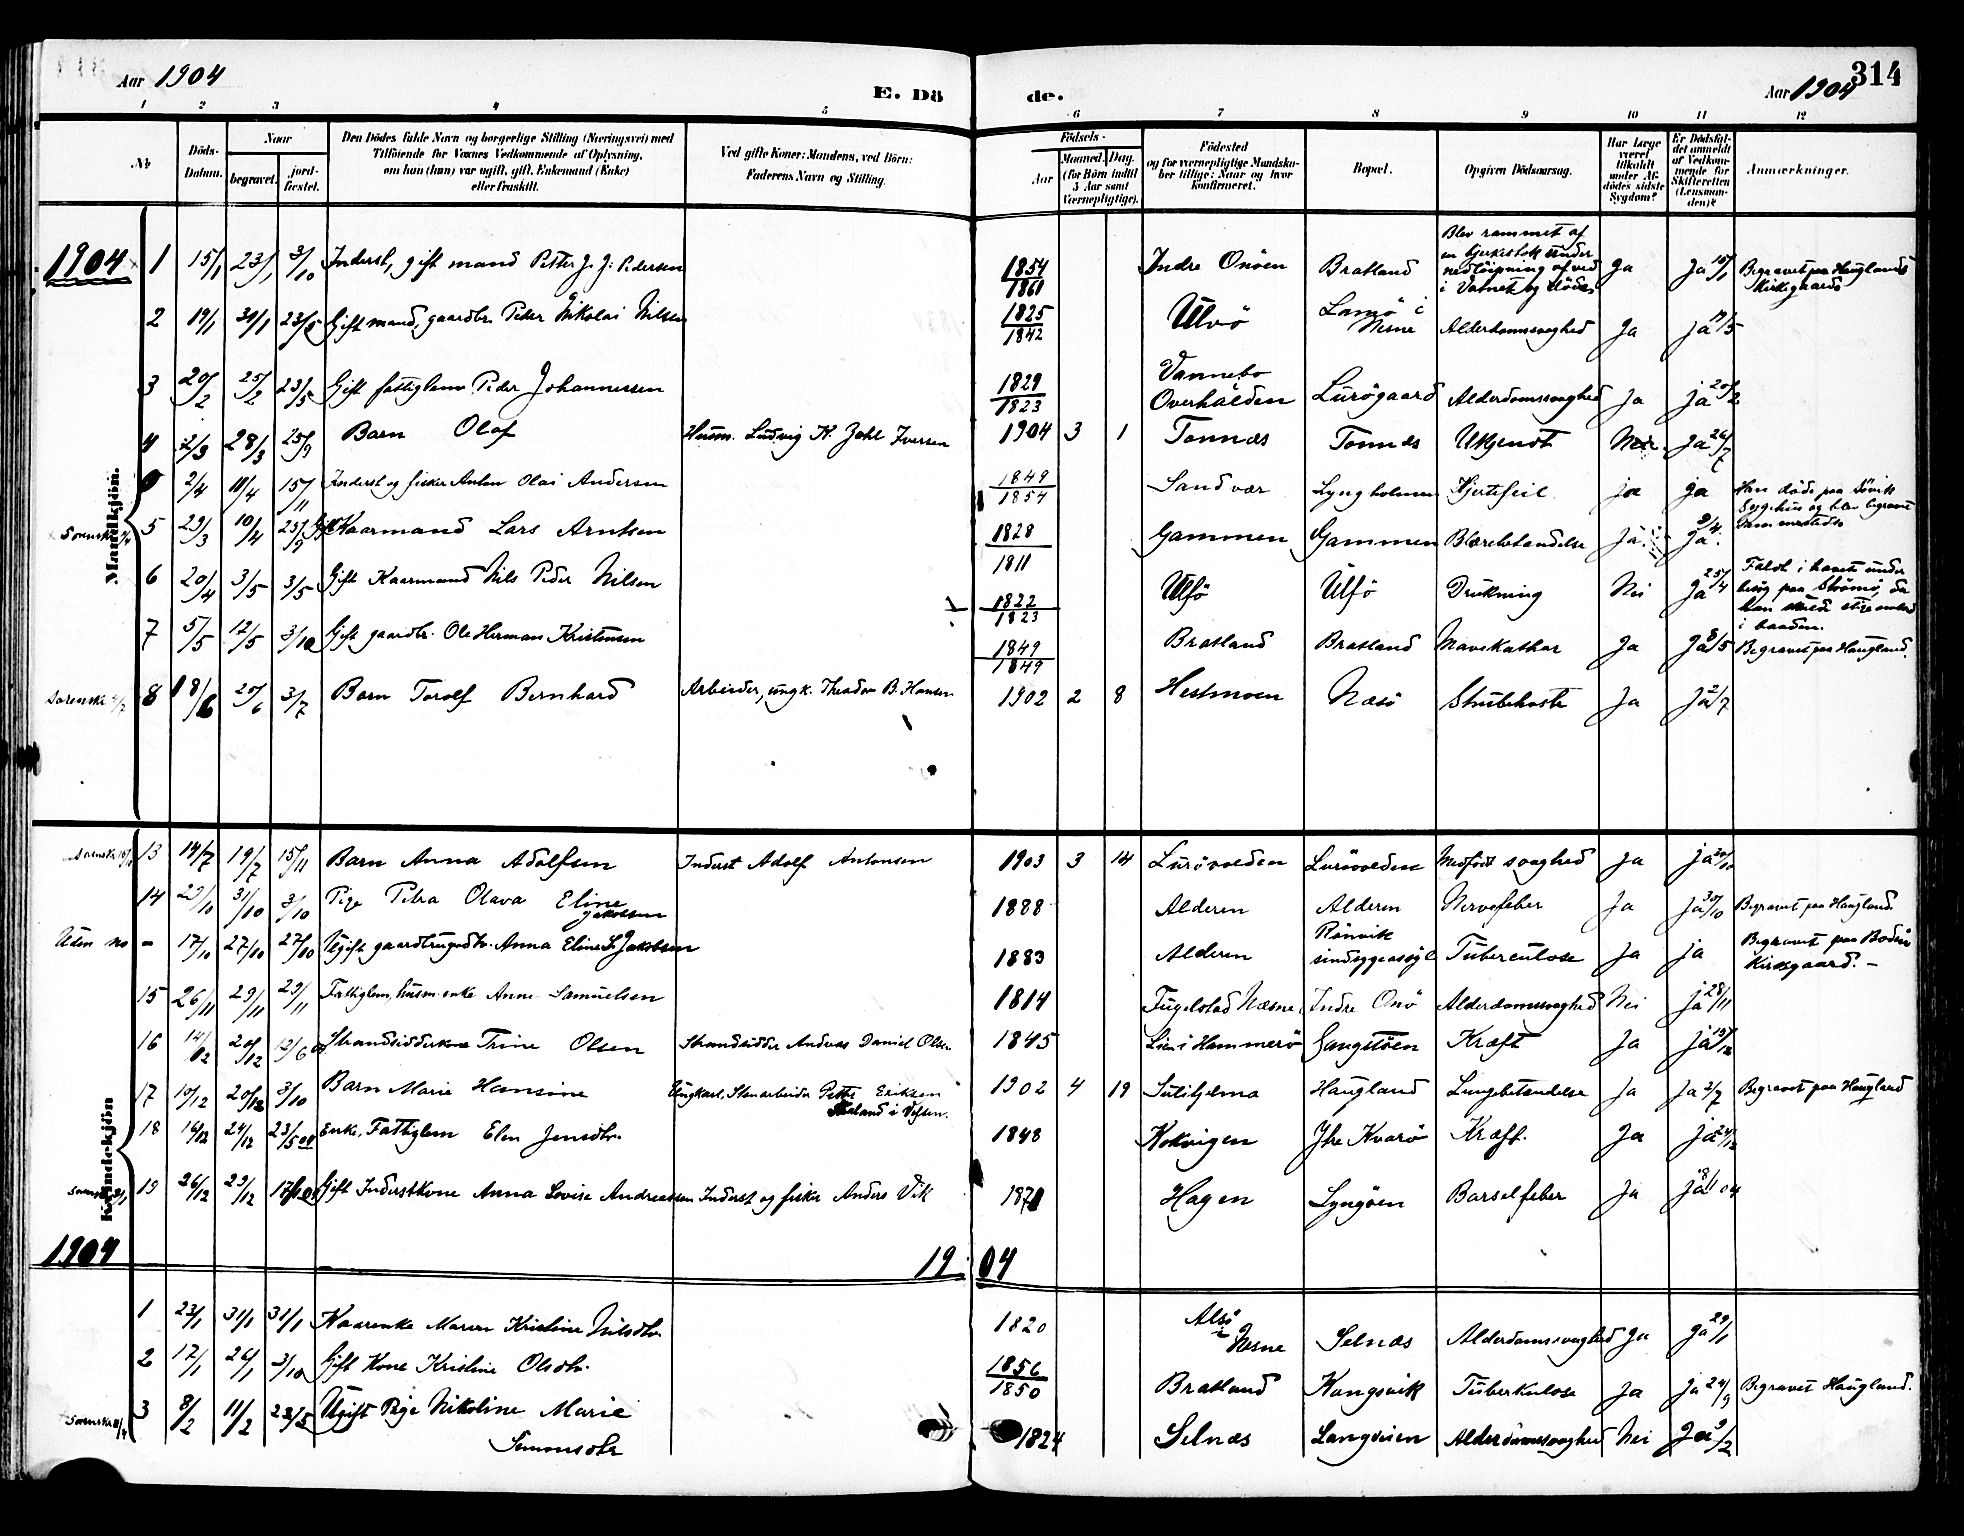 Aar 1904
E. Dö
de.
Aar 1904
314
1 2 3 4 5 6 7 8 9 10 11 12
No
Döds-
Datum.
Naar
begravet.
jord-
fæstet.
Den Dödes fulde Navn og borgerlige Stilling (Næringsvei) med
Tilföiende for Voxnes Vedkommende af Oplysning,
om han (hun) var ugift, gift, Enkemand (Enke)
eller fraskilt.
Ved gifte Koner: Mandens, ved Börn:
Faderens Navn og Stilling.
Födsels-
Aar
Maaned. Dag.
(for Börn indtil
5 Aar samt
Værnepligtige).
Födested
og for værnepligtige Mandska-
ber tillige: Naar og hvor
Konfirmeret.
Bopæl.
Opgiven Dödsaarsag.
Har Læge
været
tilkaldt
under Af-
dödes sidste
Sygdom?
Er Dödsfal-
det anmeldt
af Vedkom-
mende for
Skifteretten
(Lensman-
den)?
Anmærkninger.
Mandkjön.
1904 1 15/1 23/1 3/10 Inderst, gift mand Petter J. J. Pedersen 1854/1861 Indre Onöen Bratland Blev rammet af
en birkestok under
nedløipning af ved
i Vatnet og döde. Ja Ja 18/1 Begravet paa Hauglands
Kirkegaard
2 19/1 30/1 23/5 Gift mand, gaardbr. Peder Nikolai Nilsen 1825/1842 Ulvö Lamö i
Nesne Alderdomssvaghed Ja ja /5
3 20/2 25/2 23/5 Gift fattiglem Peder Johannessen 1829/1823 Vannebo
Overhalden Lurögaard Alderdomssvaghed Ja ja 20/2
4 2/3 28/3 25/9 Barn Olaf Husm. Ludvig K. Johl Iversen 1904 3 1 Tonnæs Tonnæs Ukjendt Nei Ja 26/7
0 2/4 10/4 15/11 Inderst og fisker Anton Olai Andersen 1849/1854 Sandvær Lyngholmen Hjertefeil ja ja Han døde paa
Sygehus og blev begravet
sammesteds
5 29/3 10/4 25/9 Gift Kaarmand Lars Arntsen 1828/1811 Gammen Gammen Blærebetændelse Ja Ja 9/4
6 20/4 3/5 3/5 Gift Kaarmand Nils Peder Nilsen 1822/1823 Ulfö Ulfö Drukning Nei Ja 25/4 Faldt i havet under
besög paa Strömö, da
han skulde stige ombord
i baaden.
7 5/5 12/5 3/10 Gift gaardbr. Ole Herman Kristensen 1849/1849 Bratland Bratland Mavekathar Ja Ja 8/5 Begravet paa Haugland.
8 18/6 20/6 3/7 Barn Torolf Bernhard Arbeider, ungk. Theodor B. Hansen 1902 2 8 Hestmoen Næsö Strubehoste Ja Ja 2/7
Kvindekjön
13 14/7 19/7 15/11 Barn Anna Adolfsen Inderst Adolf Antonsen 1903 3 14 Lurövolden Lurövolden Medfödt svaghed Ja ja 20/10
14 29/10 31/10 3/10 Pige Petra Olava Eline
Jakobsen 1888 Alderen Alderen Nervefeber Ja Ja 30/10 Begravet paa Haugland.
Uden No - 17/10 27/10 27/10 Ugift gaardbrugerdtr. Anna Eline S. Jakobsen 1883 Alderen Rönvik
sindsygeasyl Tuberculose Ja ja Begravet paa Bodin
Kirkegaard. -
15 26/11 29/11 29/11 Fattiglem, husm. enke Anne Samuelsen 1814 Fugelstad Næsne Indre Onö Alderdomssvaghed Nei ja 28/11
16 14/12 20/12 12/6 Strandsidderkone Trine Olsen Strandsidder Andreas Daniel Olsen 1845 Lien i Hammerö Gangstöen Kræft Ja ja 19/12
17 10/12 20/12 3/10 Barn Marie Hansine Ungkarl, Stenarbeider Petter Eriksen
i Vefsen. 1902 4 19 Sulitjelma Haugland Lungebetændelse Ja Ja 2/7 Begravet paa Haugland
18 16/12 24/12 23/5 Enke, Fattiglem Elen Jensdtr. 1848 Kokvigen Ytre Kvarö Kræft. Ja ja 24/12
19 26/12 29/12 17/10 Gift Inderstkone Anna Lovise Andreassen Inderst og fisker Anders Vik 1871 Hagen Lyngöen Barselfeber Ja ja 8/1 04
1904 1904
1 23/1 31/1 31/1 Kaarenke Maren Kristine Nilsdtr. 1820 Alsö
i
Nesne Selnæs Alderdomssvaghed Ja Ja 29/1
2 17/1 26/1 3/10 Gift Kone Kristine Olsdtr. 1856/1850 Bratland Kongsvik Tuberkulose Ja Ja 24/9 Begravet Haugland.
3 8/2 11/2 23/5 Ugift Pige Nikoline Marie
Simonsdtr 1824 Selnæs Langveien Alderdomssvaghed Nei Ja 9/2